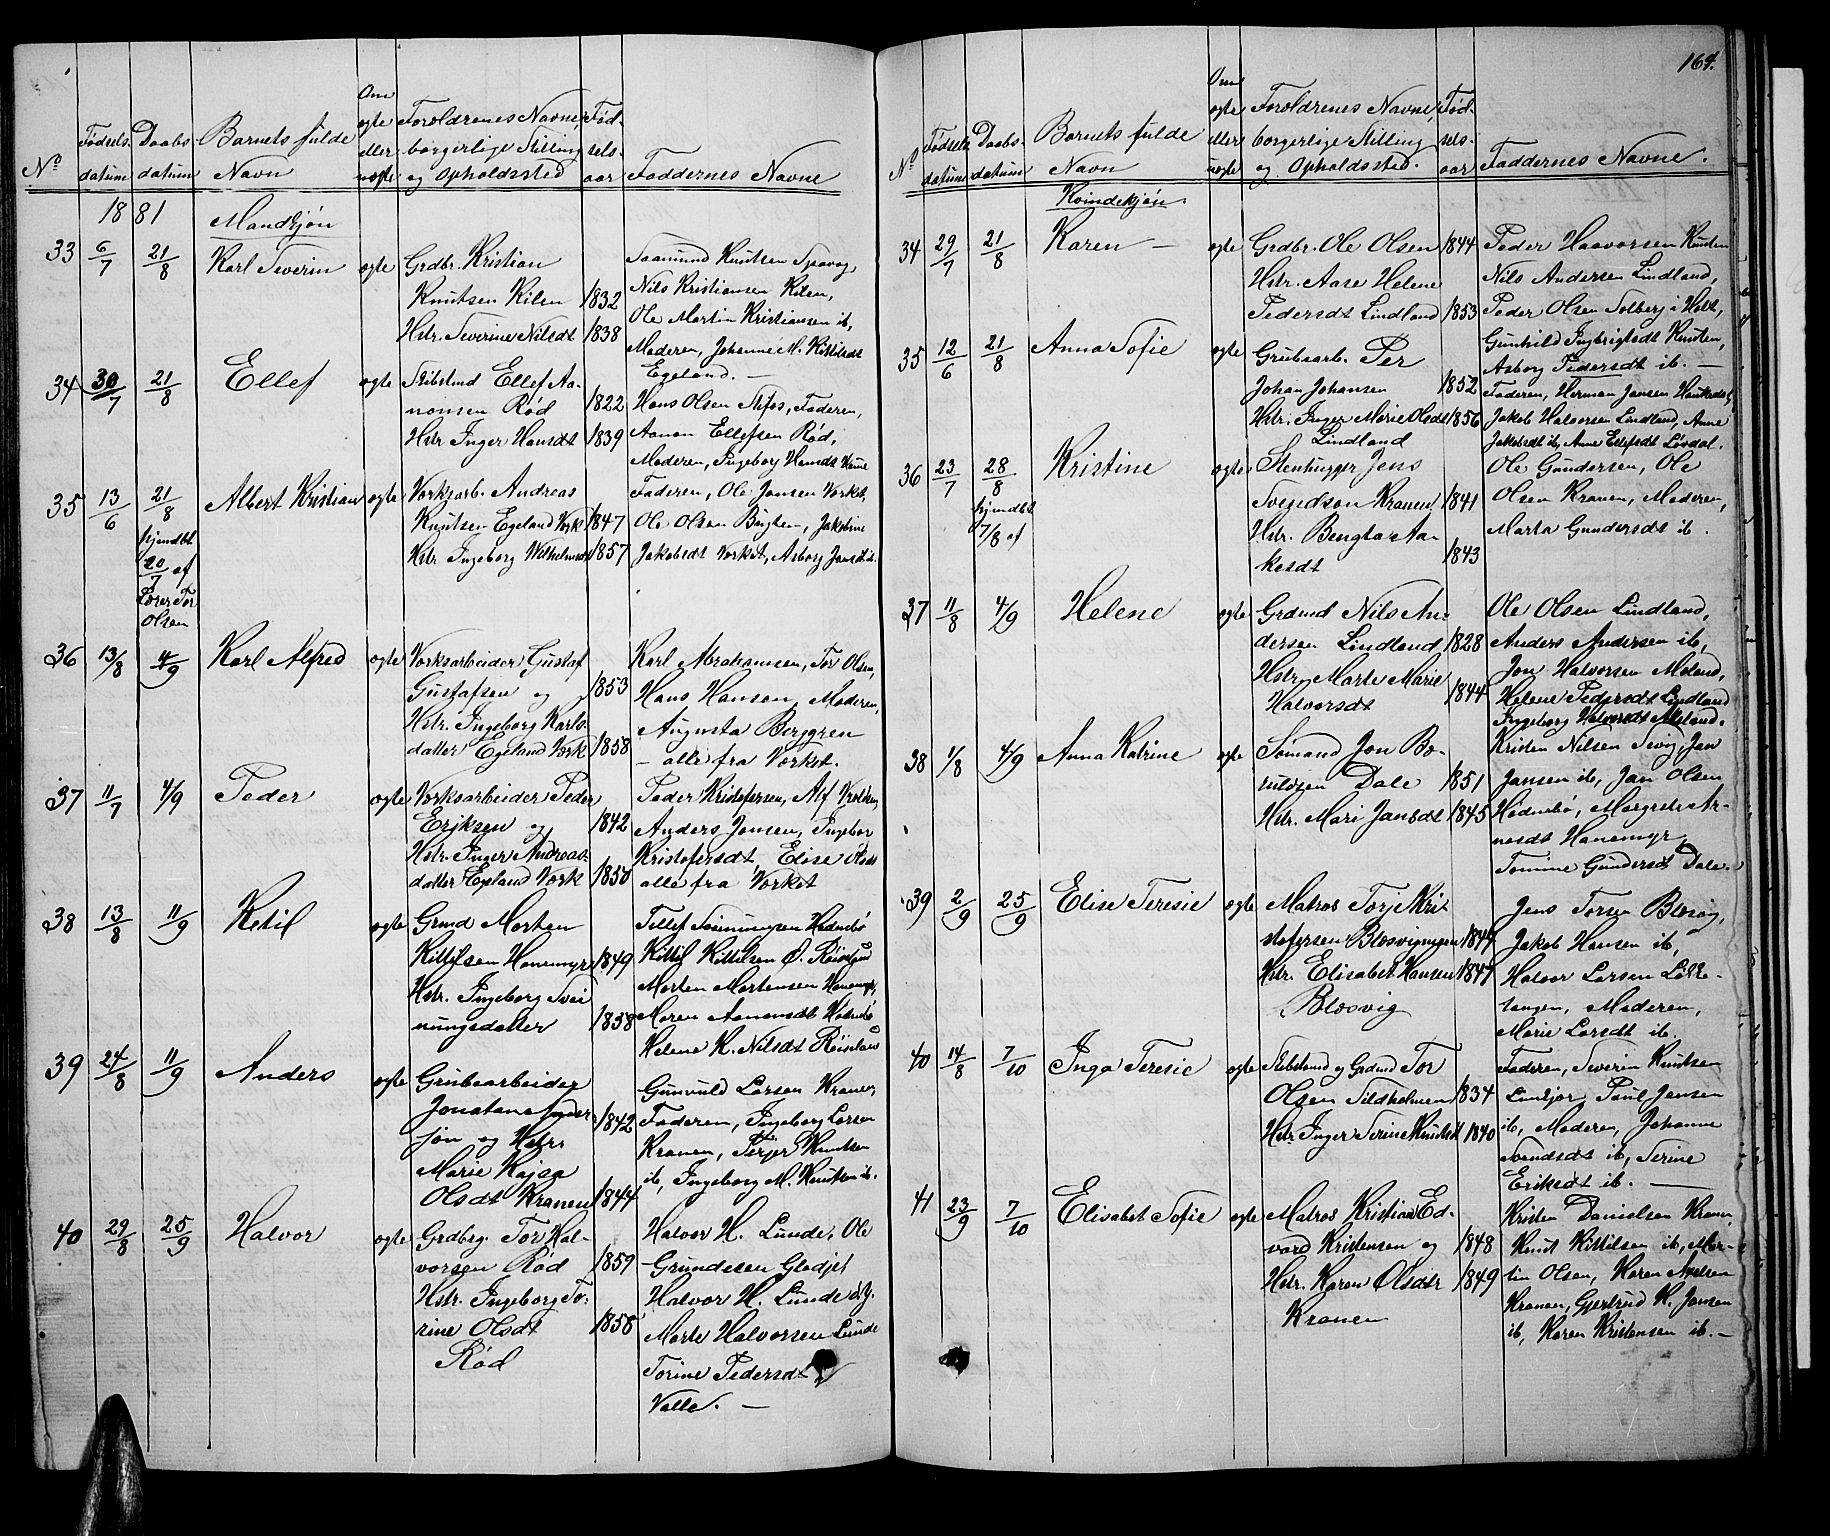 164.
No
Fødsels-
datum
Daabs-
datum
Barnets fulde
Navn
Om
ægte
eller
uægte
Forældrenes Navne,
borgerlige Stilling
og Opholdssted
Fød-
sels-
aar
Faddernes Navne
1881
Mandkjøn
33 6/7 21/8 Karl Severin ægte
Grdbr. Kristian
Knutsen Kilen 1832
Hstr. Severine Nilsdt 1838
Saamund Knutsen
Nils Kristiansen Kilen,
Ole Martin Kristiansen ib,
Moderen, Johanne M. Kittilsdt
Egeland. —
34 30/7 21/8 Ellef ægte
Ellef Aa-
nonsen Rød 1822
Hstr. Inger Hansdt 1839
Hans Olsen Stifos, Faderen,
Aanon Ellefsen Rød,
Moderen, Ingeborg Hansdt
35 13/6 21/8 Albert Kristian ægte
hjemdbt
20/7 af
Lærer Tor
Olsen
Værksarb. Andreas
Knutsen Egeland Værk 1847
Hstr. Ingeborg Vilhelmsdt 1857
Faderen, Ole Jensen Værket,
Ole Olsen Bugten, Jakobine
Jakobsdt Værket, Asborg Jansdt ib.
36 13/8 4/9 Karl Alfred ægte
Værksarbeider Gustaf
Gustafsen og 1853
Hstr. Ingeborg Karls-
datter Egeland Værk 1858
Karl Abrahamsen, Tor Olsen,
Hans Hansen, Moderen,
Augusta Berggren
— alle fra Værket.
37 11/7 4/9 Peder ægte
Værksarbeider Peder
Eriksen og 1842
Hstr. Inger Andreas-
datter Egeland Værk 1850
Peder Kristofersen, Alf
Anders Jensen, Ingebor
Kristofersdt, Elise Olsdt
alle fra Værket
38 13/8 11/9 Ketil ægte
Grmd Morten
Kittilsen Hanemyr 1849
Hstr. Ingeborg Svei
nungsdatter 1858
Tellef Sveinungsen Hødnebø
Kittil Kittilsen Ø.
Morten Mortensen Hanemyr,
Maren Aanonsdt Hødnebø
Helene K. Nilsdt
39 24/8 11/9 Anders ægte
Grubearbeider
Jonatan Ander
søn og Hstr. 1842
Marie Kajsa
Olsdt Kranen 1844
Gunvald Larsen Kranen,
Faderen, Ingeborg Larsen
Kranen, Terjer Knutsen
ib, Ingeborg M. Knutsen ib.
40 29/8 25/9 Halvor ægte
Grdbrg. Tor Hal-
vorsen Rød 1859
Hstr. Ingeborg To-
rine Olsdt 1858
Rød
Halvor H. Lunde, Ole
Grundesen Gladjet
Halvor H. Lunde d.y.
Marte Halvorsen Lunde
Torine Pedersdt
Valle. —
No
Fødsels-
datum
Daabs-
datum
Barnets fulde
Navn
Om
ægte
eller
uægte
Forældrenes Navne,
borgerlige Stilling
og Opholdssted.
Fød-
sels-
aar
Faddernes Navne.
Kvindekjøn.
34 29/7 21/8 Karen — ægte
Grdbr. Ole Olsen 1844
Hstr. Aase Helene
Pedersdt Lindland 1853
Peder Haavorsen Knuten
Nils Andersen Lindland,
Peder Olsen Solberg i Holt,
Gunhild Ingbrigtsdt Knuten,
Asborg Pedersdt ib. —
35 12/6 21/8 Anna Sofie ægte
Grubearb. Per
Johan Johansen 1852
Hstr. Inger Marie Olsdt 1856
Lindland
Faderen, Herman Jensen
Jakob Halvorsen Lindland, Anne
Jakobsdt ib, Anne Ellefsdt Løvdal.
36 23/7 28/8 Kristine ægte
hjemdbt
7/8 af
Stenhugger Jens
Svendson Kranen, 1841
Hstr. Bengta Aa-
kesdt 1843
Ole Gundersen, Ole
Olsen Kranen, Moderen,
Marta Gundersdt ib.
37 11/8 4/9 Helene ægte
Grdmd Nils An-
dersen Lindland 1828
Hstr. Marte Marie
Halvorsdt 1844
Ole Olsen Lindland,
Anders Andersen ib,
Jon Halvorsen Moland,
Helene Pedersdt Lindland
Ingeborg Halvorsdt Moland.
38 1/8 4/9 Anna Katrine ægte
Sømand Jon Bo-
Dale 1851
Hstr. Mari Jansdt 1845
Kristen Nilsen Sevig, Jan
Jansen ib, Jan Olsen
Hødnebø, Margrete Ar-
nesdt Hanemyr,
Tomine Gundersdt Dale.
39 2/9 25/9 Elise Teresie ægte
Matros Torje Kri-
stofersen
Hstr. Elisabet Hansen 1847
Blæsvig
Jens Torsen
Jakob Hansen ib,
Halvor Larsen Løkke-
tangen, Moderen,
Marie Larsdt ib.
40 14/8 7/10 Inga Teresie ægte
og Grdmd Tor
Olsen Sildholmen 1834
Hstr. Inger Serine Knutsdt 1840
Faderen, Severin Knutsen
Paul Jensen
ib, Moderen, Johanne
Svendsdt ib, Serine
Eriksdt ib. —
41 23/9 7/10 Elisabet Sofie ægte
Matros Kristian Ed-
vard Kristensen og 1848
Hstr. Karen Olsdtr 1849
Kranen
Kristen Danielsen Kranen,
Knut Kittilsen ib, Mar-
tin Olsen, Karen Axelsen
Kranen, Gjertrud K. Jansen
ib, Karen Kristensen ib. —